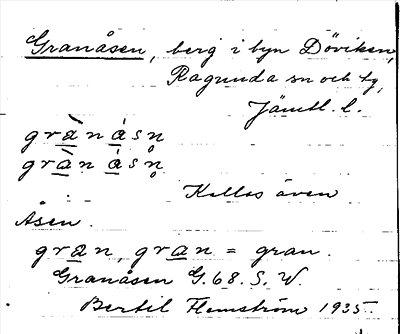 Granåsen, berg i byn Döviken,
Ragunda sn och tg,
Jämtl. l.
grànásn̥
grànásn̥
Kallas även
Åsen.
gran, gran = gran.
Granåsen G.68.S.W.
Bertil Flemström 1935.